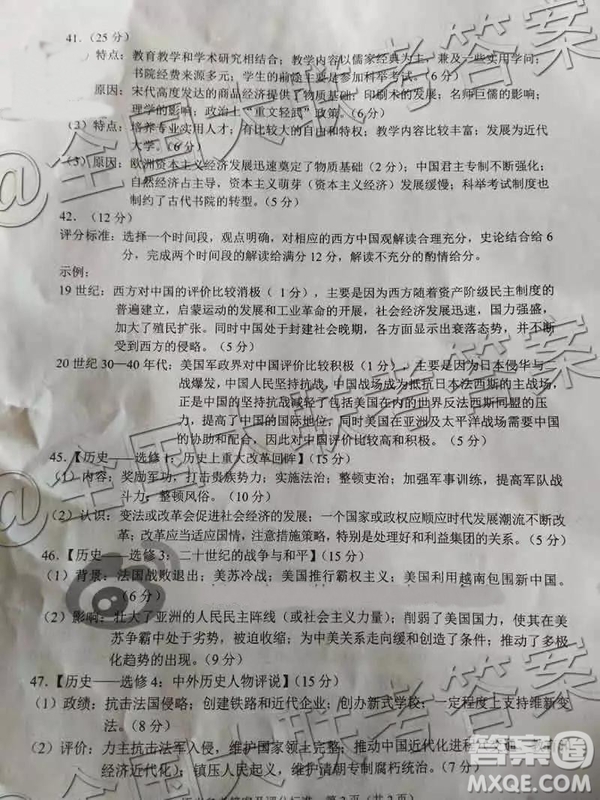 41.（25分）
（1）特点：教育教学和学术研究相结合；教学内容以儒家经典为主，兼及一些实用学问；
书院经费来源多元；学生的前途主要是参加科举考试。（6分）
原因：宋代高度发达的商品经济提供了物质基础；印刷术的发展；名师巨儒的影响；
理学的影响；政治上“重文轻武”政策。（6分）
（2）特点：培养专业实用人才；有比较大的自由和特权；教学内容比较丰富；发展为近代
大学。（6分）
（3）原因：欧洲资本主义经济发展迅速奠定了物质基础（2分）；中国君主专制不断强化；
自然经济占主导，资本主义萌芽（资本主义经济）发展缓慢；科举考试制度也
制约了古代书院的转型。（5分）
42.（12分）
评分标准：选择一个时间段，观点明确，对相应的西方中国观解读合理充分，史论结合给6
分，完成两个时间段的解读给满分12分，解读不充分的酌情给分。
示例：
19世纪：西方对中国的评价比较消极（1分），主要是因为西方随着资产阶级民主制度的
普遍建立，启蒙运动的发展和工业革命的开展，社会经济发展迅速，国力强盛，
加大了殖民扩张。同时中国处于封建社会晚期，各方面显示出衰落态势，并不断
受到西方的侵略。（5分）
20世纪30—40年代：美国军政界对中国评价比较积极（1分），主要是因为日本侵华与
战爆发，中国人民坚持抗战，中国战场成为抵抗日本法西斯的主战场，
正是中国的坚持抗战减轻了包括美国在内的世界反法西斯同盟的压
力，提高了中国的国际地位，同时美国在亚洲及太平洋战场需要中国
的协助和配合，因此对中国评价比较高和积极。（5分）
45.【历史——选修1：历史上重大改革回眸】（15分）
（1）内容：奖励军功，打击贵族势力；实施法治；整顿吏治；加强军事训练，提高军队战
斗力；整顿风俗。（10分）
（2）认识：变法或改革会促进社会经济的发展；一个国家或政权应顺应时代发展潮流不断改
革；改革应适应国情，注意措施策略，特别是处理好和利益集团的关系。（5分）
46.【历史——选修3：二十世纪的战争与和平】（15分）
（1）背景：法国战败退出；美苏冷战；美国推行霸权主义；美国利用越南包围新中国。
（6分）
（2）影响：壮大了亚洲的人民民主阵线（或社会主义力量）；削弱了美国国力，使其在美
苏争霸中处于劣势，被迫收缩；为中美关系走向缓和创造了条件；推动了多极
化趋势的出现。（9分）
47.【历史——选修4：中外历史人物评说】（15分）
（1）政绩：抗击法国侵略；创建铁路和近代企业；创办新式学校；一定程度上支持维新变
法。（8分）
（2）评价：力主抗击法军入侵，维护国家领土完整；推动中国近代化进程
经济近代化）；镇压人民起义，维护清朝专制腐朽统治。（7分）
第2页（共2页）
@全国大联考答案
@全国大联考答案
答案圈
MXQE.COM